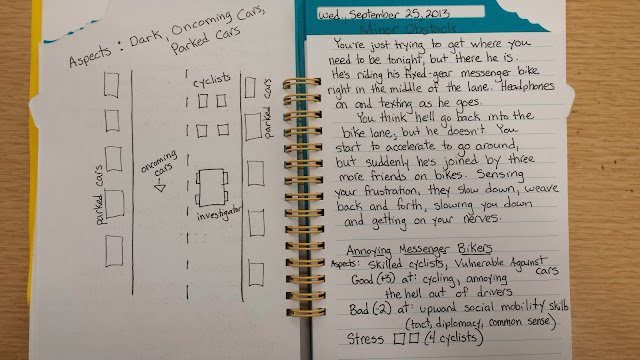 Aspects: Dark, Oncoming Cars,
Parked Cars
cyclists
parked cars
oncoming
cars
parked cars
investigator
Wed., September 25, 2013
Minor Obstacle
You're just trying to get where you
need to be tonight, but there he is.
He's riding his fixed-gear messenger bike
right in the middle of the lane. Headphones
on and texting as he goes.
You think he'll go back into the
bike lane, but he doesn't. You
start to accelerate to go around,
but suddenly he's joined by three
more friends on bikes. Sensing
your frustration, they slow down, weave
back and forth, slowing you down
and getting on your nerves.
Annoying Messenger Bikers
Aspects: Skilled cyclists, Vulnerable Against
cars
Good (+5) at: cycling, annoying
the hell out of drivers
Bad (-2) at: upward social mobility skills
(tact, diplomacy, common sense)
Stress □□ (4 cyclists)